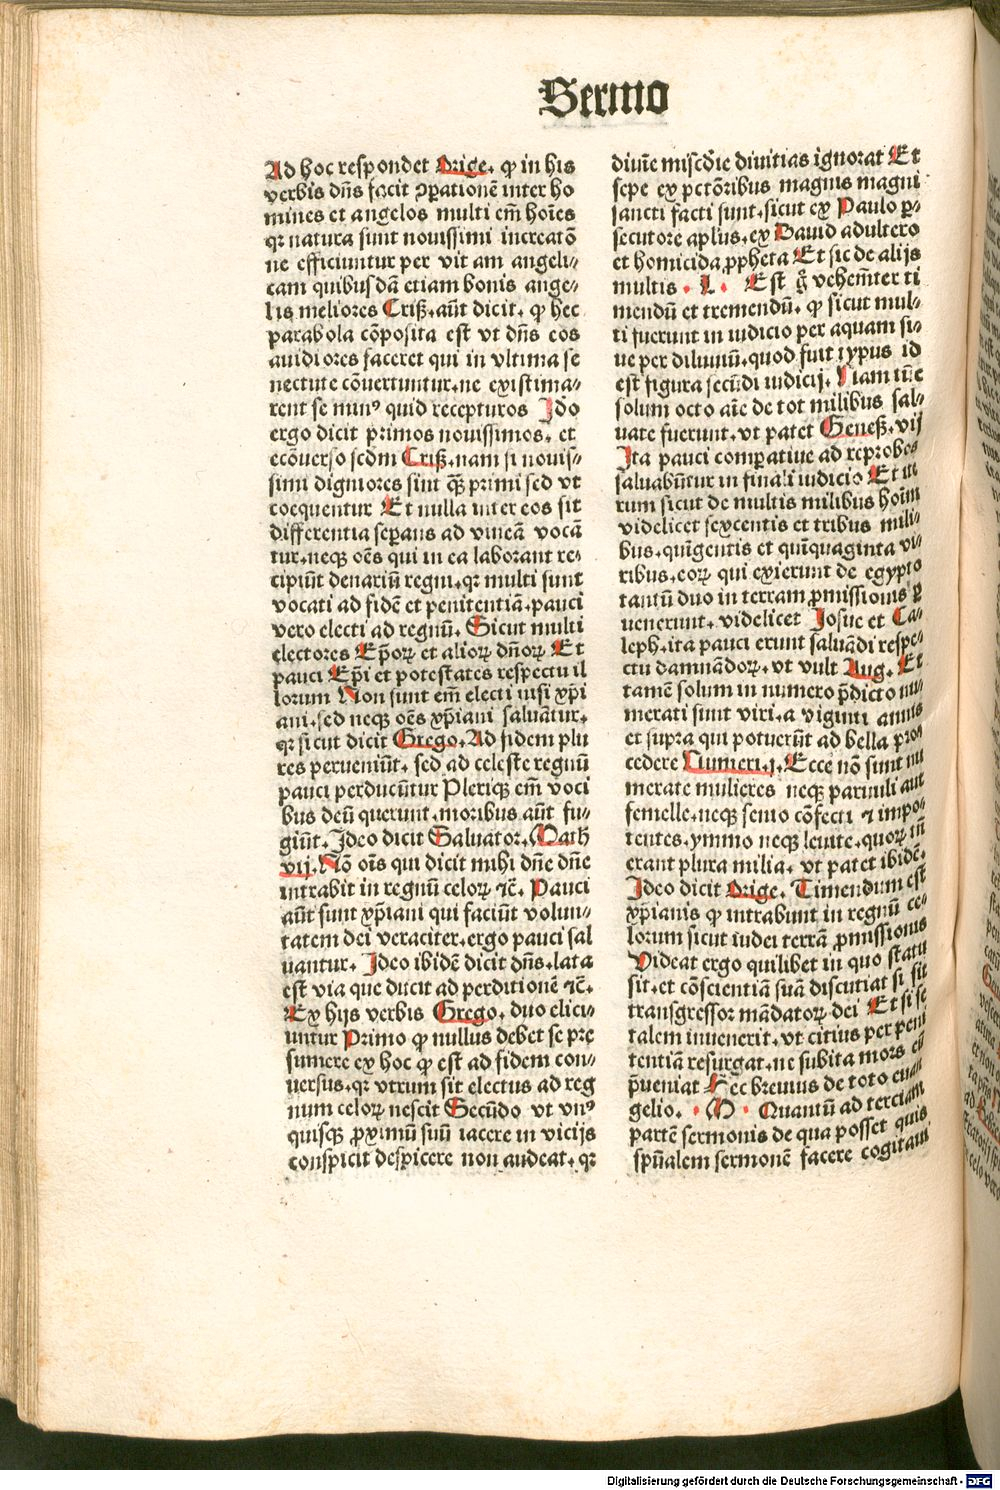 Sermo
Ad hoc respondet Orige. ꝙ in his
verbis dn̄s facit ꝯparationē inter ho
mines et angelos multi em̄ hoīes
qꝛ natura sunt nouissimi increatō
ne efficiuntur per vit am angeli⸗
cam quibusdā etiam bonis ange⸗
lis meliores Criß. aūt dicit. ꝙ hec
parabola cōposita est vt dn̄s eos
auidiores faceret qui in vltima se
nectute cōuertuntur. ne existima⸗
rent se minꝰ quid recepturos Ido
ergo dicit primos nouissimos. et
ecōuerso scdm Criß. nam si nouis⸗
simi digniores sint qȝ primi sed vt
coequentur Et nulla inter eos sit
differentia seꝑans ad vineā vocā
tur. neqȝ oēs qui in ea laborant re⸗
cipiūt denariū regni. qꝛ multi sunt
vocati ad fidē et penitentiā. pauci
vero electi ad regnū. Sicut multi
electores Ep̄oꝝ et alioꝝ dn̄oꝝ Et
pauci Ep̄i et potestates respectu il
lorum Non sunt em̄ electi nisi xp̄i
ani. sed neqȝ oēs xp̄iani saluātur.
qꝛ sicut dicit Grego. Ad fidem plu
res perueniūt. sed ad celeste regnū
pauci perducūtur Pleriqȝ em̄ voci
bus deū querunt. moribus aūt fu⸗
giūt. Ideo dicit Saluator. Math
vij. Nō oīs qui dicit mihi dn̄e dn̄e
intrabit in regnū celoꝝ ⁊c̄. Pauci
aūt sunt xp̄iani qui faciūt volun⸗
tatem dei veraciter. ergo pauci sal
uantur. Ideo ibidē dicit dn̄s. lata
est via que ducit ad perditionē ⁊c̄.
Ex hijs verbis Grego. duo elici⸗
untur Primo ꝙ nullus debet se pre
sumere ex hoc ꝙ est ad fidem con⸗
uersus. qꝛ vtrum sit electus ad reg
num celoꝝ nescit Secūdo vt vnꝰ
quisqȝ ꝓximū suū iacere in vicijs
conspicit despicere non audeat. qꝛ
diuīe misc̄die diuitias ignorat Et
sepe ex pctōribus magnis magni
sancti facti sunt. sicut ex Paulo ꝑ⸗
secutore aplūs. ex Dauid adultero
et homicida ꝓpheta Et sic de alijs
multis. L. Est g̊ vehemēter ti
mendū et tremendū. ꝙ sicut mul⸗
ti fuerunt in iudicio per aquam si⸗
ue per diluuiū. quod fuit typus id
est figura secūdi iudicij. Nam tūc
solum octo aīe de tot milibus sal⸗
uate fuerunt. vt patet Geneß. vij
Ita pauci comparatiue ad reprobos
saluabūtur in finali iudicio Et ite
rum sicut de multis milibus hoīm
videlicet sexcentis et tribus mili⸗
bus. quīgentis et quīquaginta vi⸗
ribus. eoꝝ qui exierunt de egypto
tantū duo in terram ꝓmissionis ꝑ
uenerunt. videlicet Josue et Ca⸗
leph. ita pauci erunt saluādi respe⸗
ctu damnādoꝝ. vt vult Aug. Et
tamē solum in numero p̄dicto nu⸗
merati sunt viri. a viginti annis
et supra qui potuerūt ad bella pro⸗
cedere Numeri. j. Ecce nō sunt nu
merate mulieres neqȝ paruuli aut
femelle. neqȝ senio cōfecti ⁊ impo⸗
tentes. ymmo neqȝ leuite. quoꝝ tn̄
erant plura milia. vt patet ibidē.
Ideo dicit Orige. Timendum est
xp̄ianis ꝙ intrabunt in regnū ce⸗
lorum sicut iudei terrā ꝓmissionis
Videat ergo quilibet in quo statu
sit. et cōscientiā suā discutiat si sit
transgressor mādatoꝝ dei Et si se
talem inuenerit. vt citius per peni
tentiā resurgat. ne subita mors eū
p̄ueniat Hec breuius de toto euan
gelio. M. Quantū ad terciam
partē sermonis de qua posset quis
sp̄ualem sermonē facere cogitaui
Digitalisierung gefördert durch die Deutsche Forschungsgemeinschaft - DFG